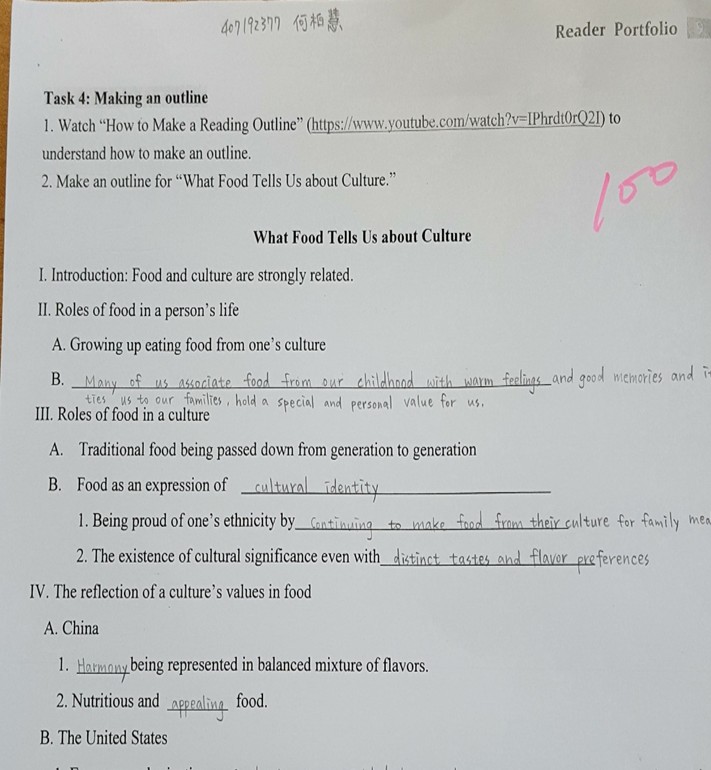 407192377 何柏慧
Reader Portfolio
Task 4: Making an outline
1. Watch “How to Make a Reading Outline” (https://www.youtube.com/watch?v=IPhrdt0rQ2I) to
understand how to make an outline.
2. Make an outline for “What Food Tells Us about Culture.”
100
What Food Tells Us about Culture
I. Introduction: Food and culture are strongly related.
II. Roles of food in a person’s life
A. Growing up eating food from one’s culture
B. Many of us associate food from our childhood with warm feelings and good memories and it
ties us to our families, hold a special and personal value for us.
III. Roles of food in a culture
A. Traditional food being passed down from generation to generation
B. Food as an expression of cultural identity
1. Being proud of one’s ethnicity by continuing to make food from their culture for family mea
2. The existence of cultural significance even with distinct tastes and flavor preferences
IV. The reflection of a culture’s values in food
A. China
1. Harmony being represented in balanced mixture of flavors.
2. Nutritious and appealing food.
B. The United States